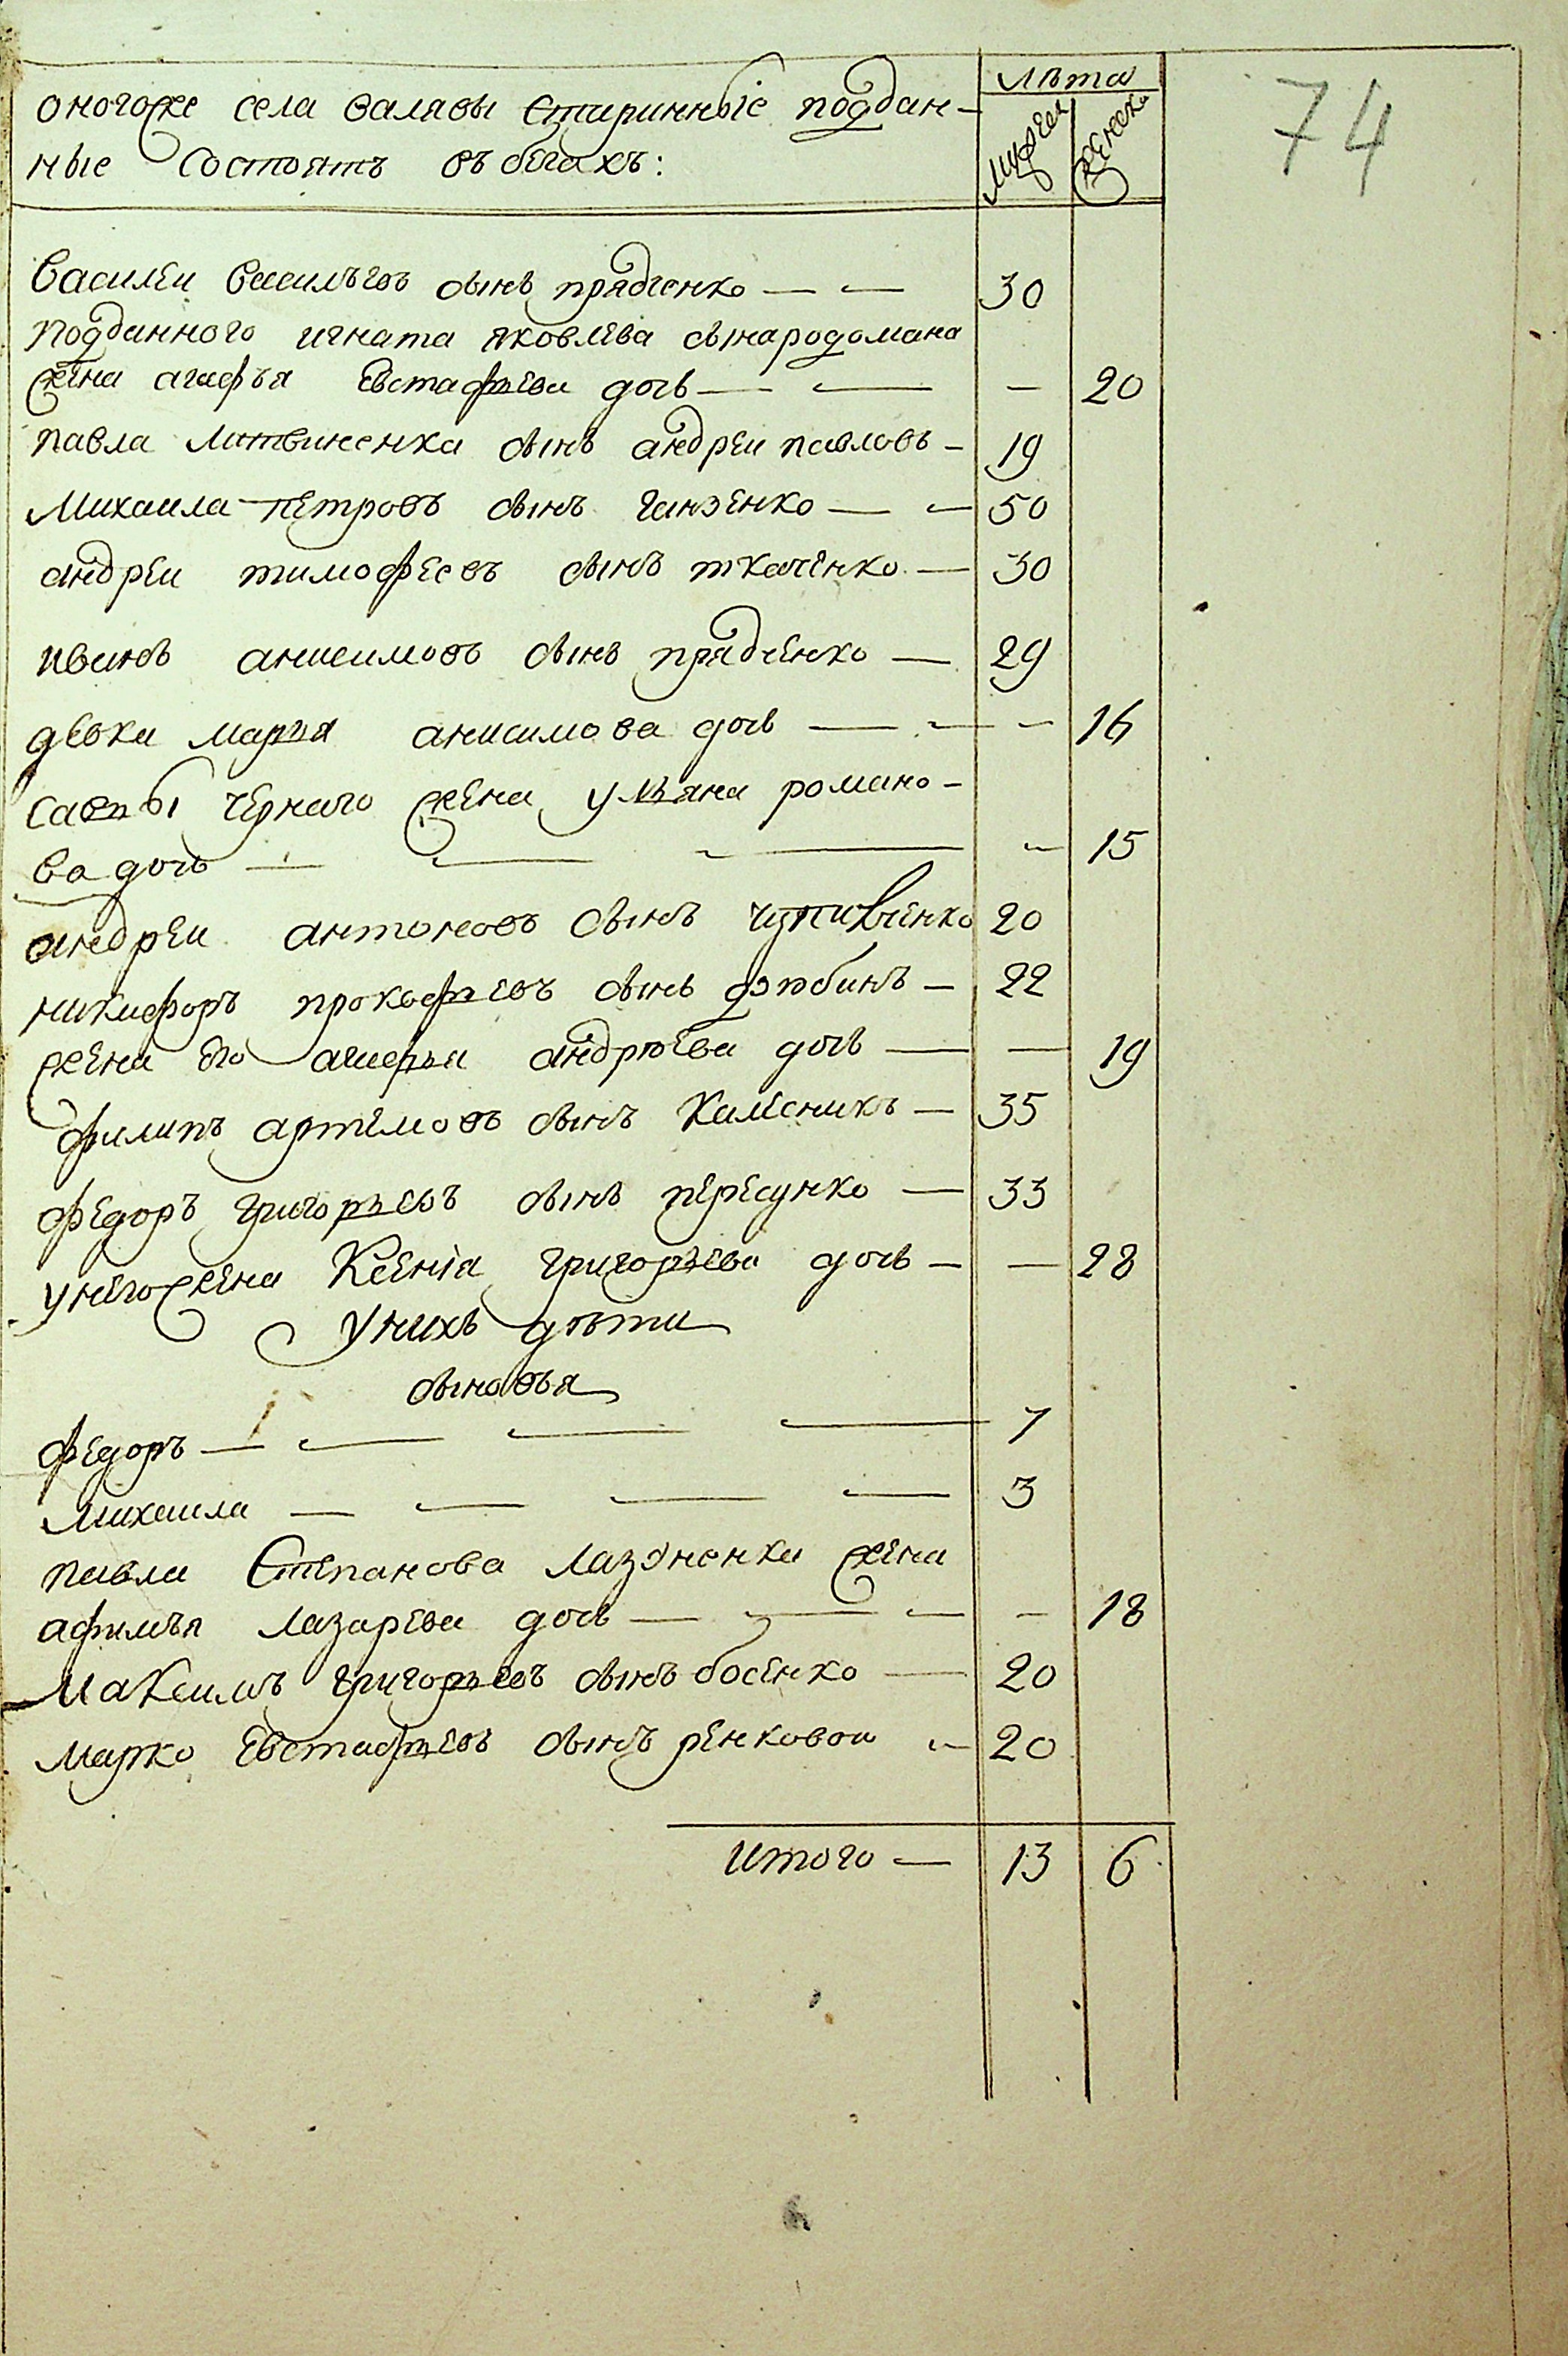 лѣта
74
оногоже села валявы старинные поддан-
ные состоятъ въ бегахъ:
мужеска женска
Василеи васильевъ сынъ прядченко — — 30
подданного игната яковлева сына родомана
жена агафья евстафьева дочь — — — 20
павла литвиненка сынъ андреи павловъ — 19
Михаила петровъ сынъ ганзенко — — 50
андреи тимофеевъ сынъ ткаченко — 30
иванъ анисимовъ сынъ прядченко — 29
девка марья анисимова дочь — — — 16
савы чернаго жена ульяна романо-
ва дочь — — — — 15
андреи антоновъ сынъ 20
никифоръ прокофьевъ сынъ — 22
жена его агафья андрюева дочь — — 19
филипъ артемовъ сынъ калесникъ — 35
федоръ григорьевъ сынъ пересунко — 33
у него жена Ксения григорьева дочь — — 28
у нихъ дѣти
сыновья
федоръ — — — — 7
михаила — — — — 3
павла степанова лазоненка жена
афимья лазарева дочь — — — — 18
максимъ григорьевъ сынъ босенко — 20
марко евстафьевъ сынъ ренковои — 20
итого — 13 6